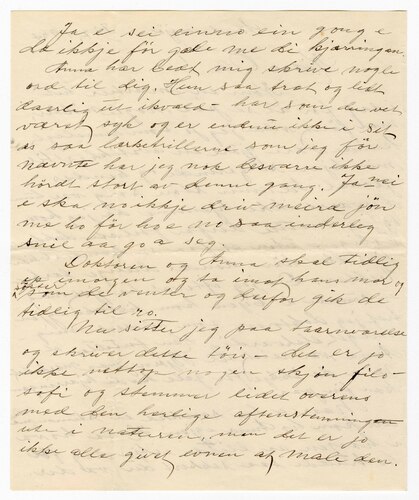 Ja e sei einno ein gong e
da ikkje för gale me di kjæringen.
Anna har bedt mig skrive nogle
ord til dig. Hun saa træt og
daarlig ut ikvæld – har som du vet
været syk og er endnu ikke i sit
es saa lærketrillerne som jeg før
nævnte har jeg nok desværre ikke
hørdt stort av denne gang. Ja nei
e ska no ikkje driv meira jøn
me ho för ho e no saa inderleg
snil aa go a seg.
Doktoren og Anna skal tidlig
op imorgen og ta imot hans mor og
som de venter og derfor gik de
tidlig til ro.
Nu sitter jeg paa taarnværelse
og skriver dette töis – det er jo
ikke nettop nogen skjøn filo-
sofi og stemmer lidet overens
med den herlige aftenstemningen
ute i naturen, men det er jo
ikke alle givet evnen at male den.